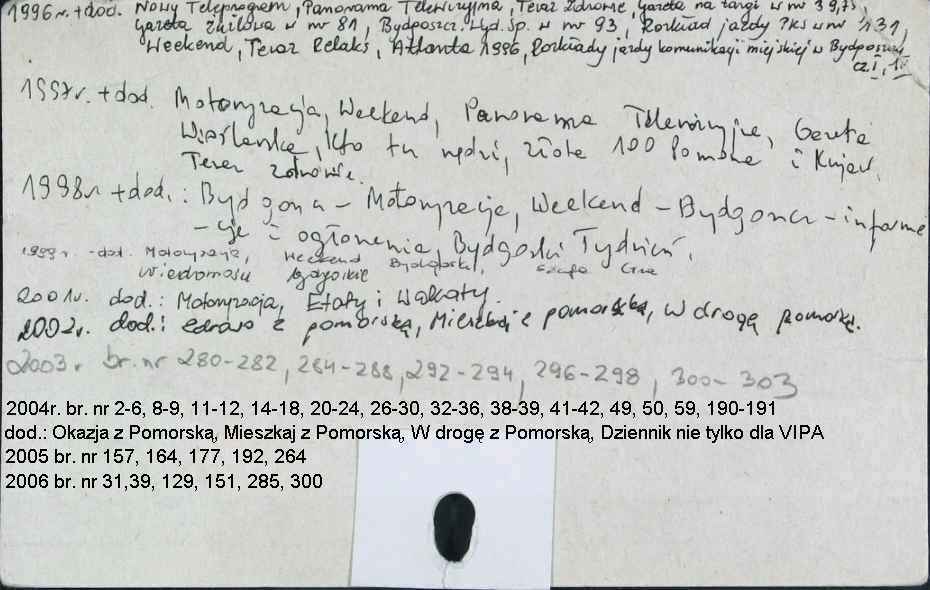 1996r. + dod. Nowy Teleprogram, Panorama Telewizyjna, Teraz Zdrowie, Gazeta na targi w nr 39,
Gazeta Żniłowa w nr 81, Bydgoszcz. Wyd. Sp. w nr 93, Rozkład jazdy PKS w nr 131,
Weekend, Teraz Relaks, Atlanta 1996, Rozkłady jazdy komunikacji miejskiej w Bydgoszczy
cz. I, II
1997r. + dod. Motoryzacja, Weekend, Panorama Telewizyjna, Gazeta
Wioślarska, Kto tu rządzi, złota 100 Pomorza i Kujaw,
Teraz zdrowie.
1998r + dod.: Bydgona - Motoryzacje, Weekend - Bydgona - informa
- cje i ogłoszenia, Bydgoski Tydzień,
1999r. - dod. Motoryzacja, Weekend Bydgoski,
Wiadomości Bydgoskie
2001r. dod.: Motoryzacja, Etaty i Wakaty.
2002r. dod.: Zdrowo z pomorską, Mieszkaj z pomorską, W drogę z pomorską.
2003r br. nr 280-282, 284-288, 292-294, 296-298, 300-303
2004r. br. nr 2-6, 8-9, 11-12, 14-18, 20-24, 26-30, 32-36, 38-39, 41-42, 49, 50, 59, 190-191
dod.: Okazja z Pomorską, Mieszkaj z Pomorską, W drogę z Pomorską, Dziennik nie tylko dla VIPA
2005 br. nr 157, 164, 177, 192, 264
2006 br. nr 31,39, 129, 151, 285, 300